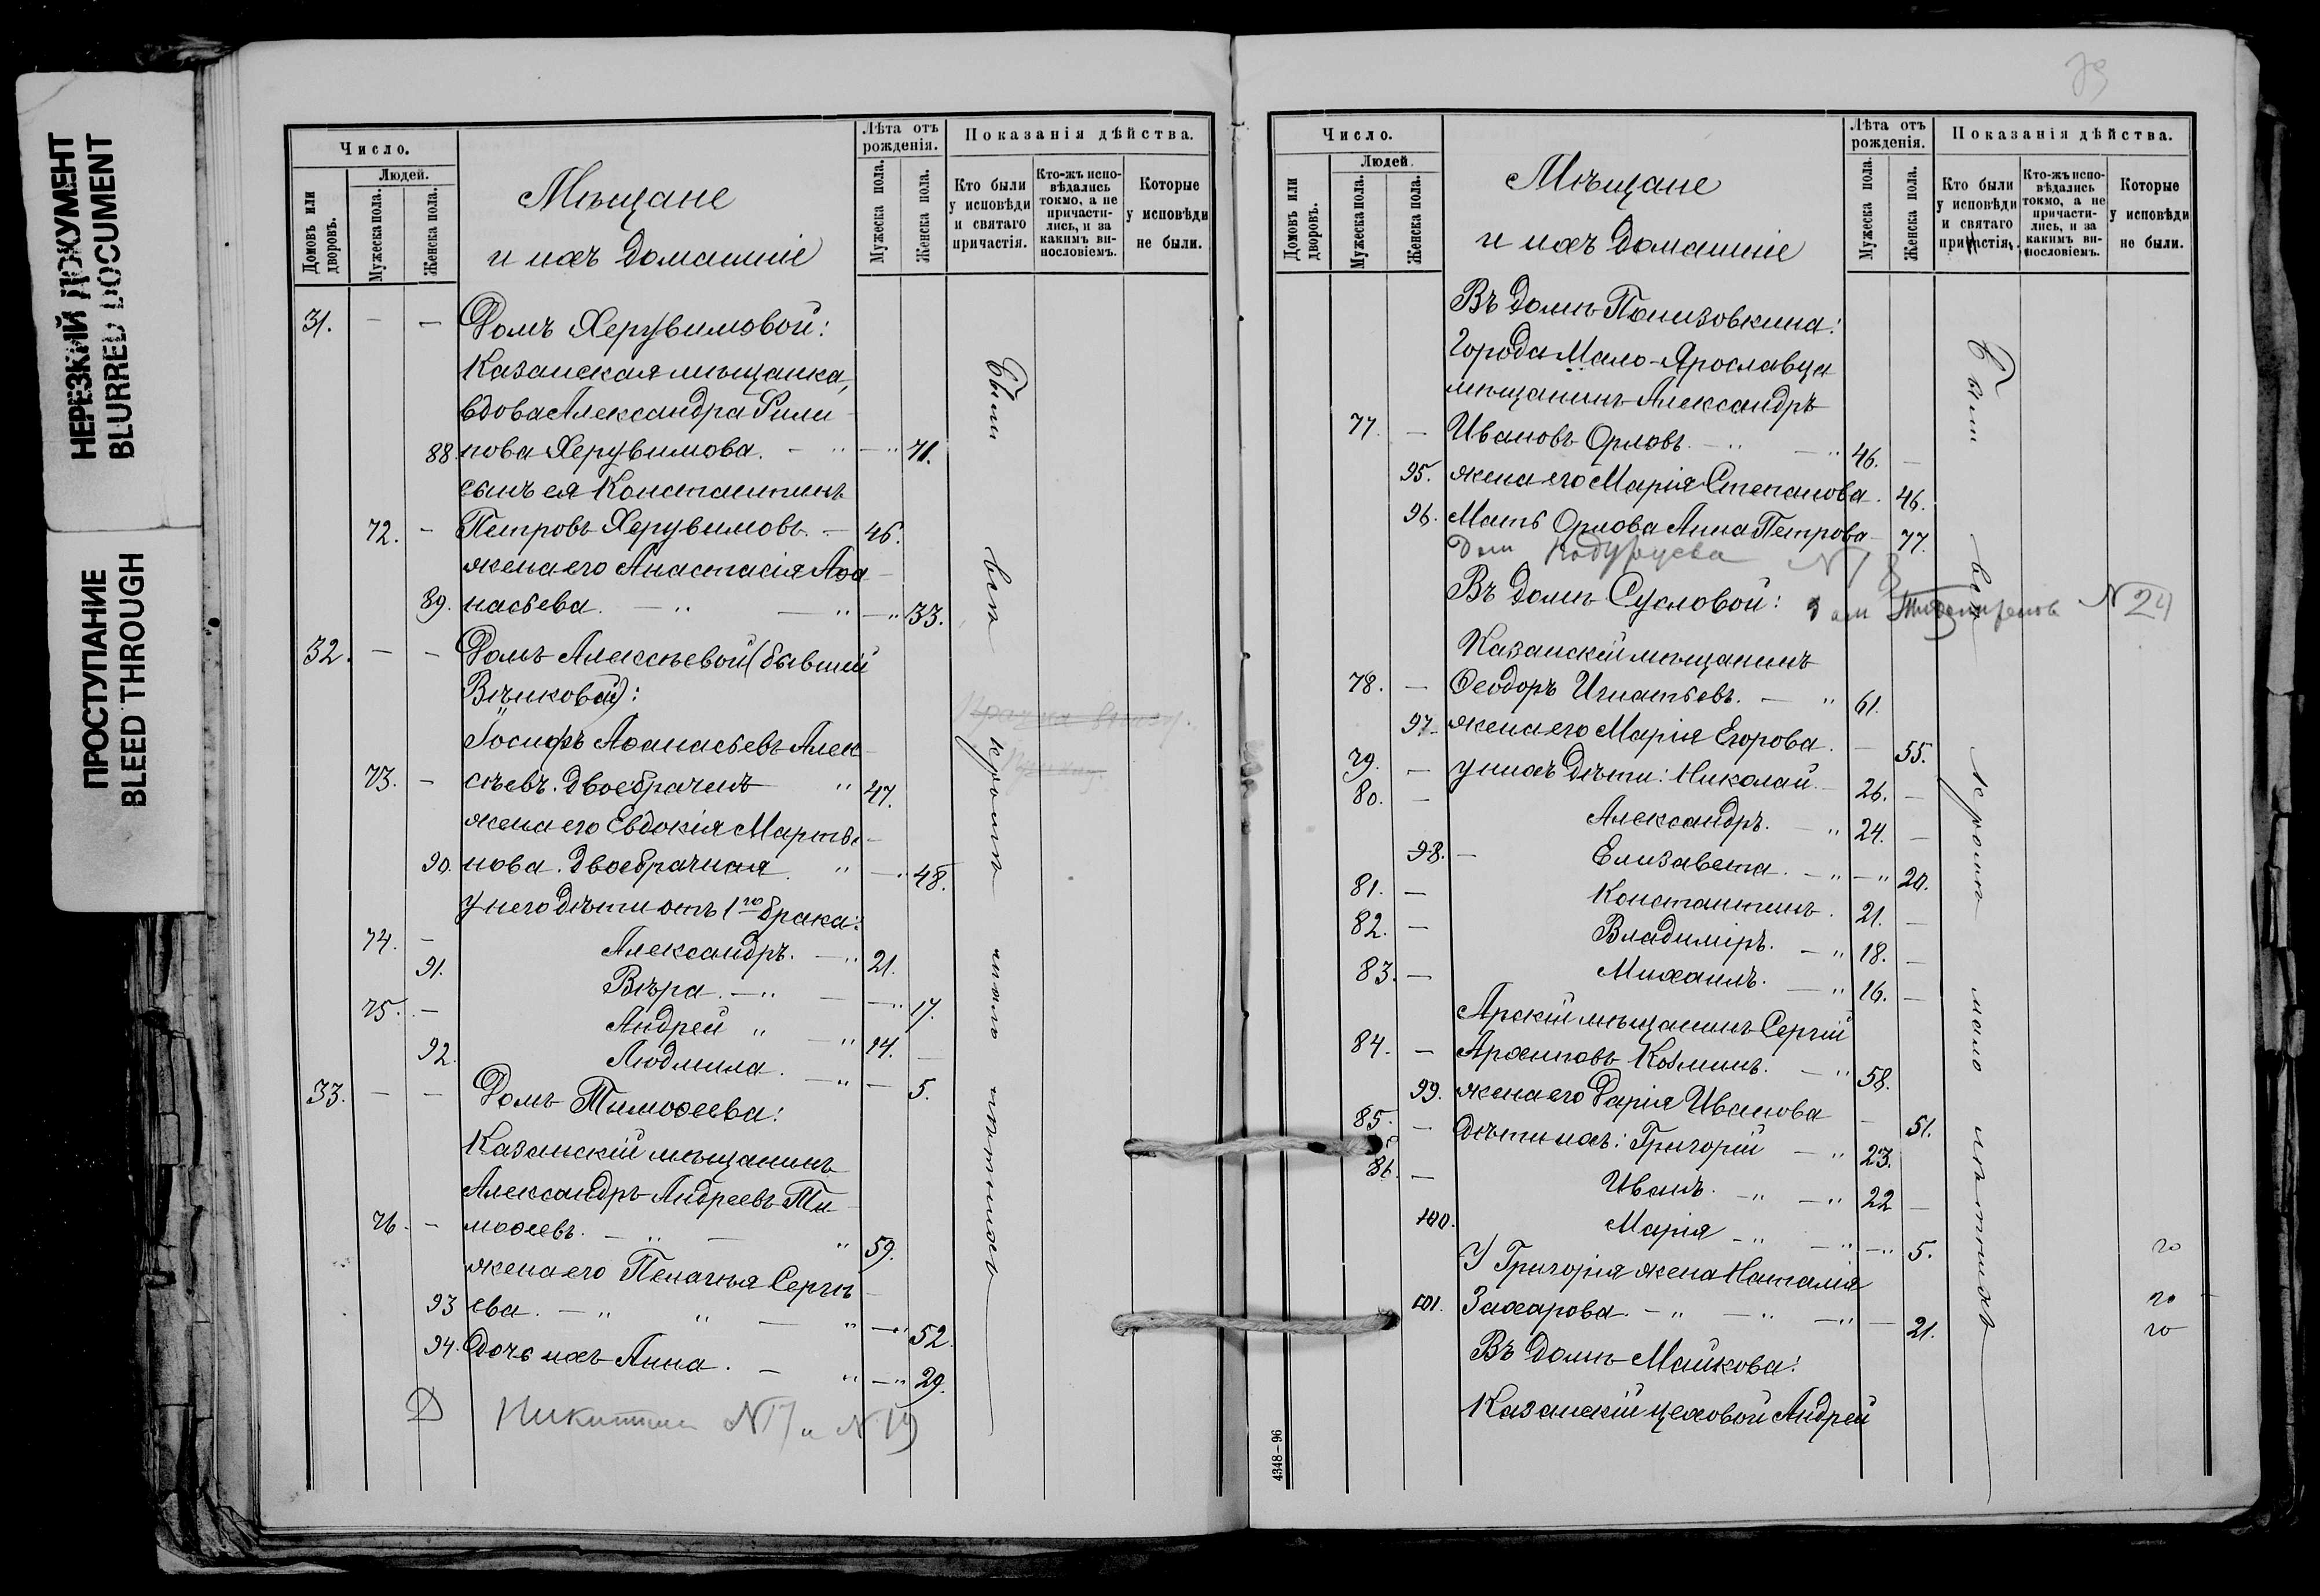 НЕРЕЗКИЙ ДОКУМЕНТ
BLURRED DOCUMENT
ПРОСТУПАНИЕ
BLEED THROUGH
Число.
Людей.
Домовъ или дворовъ.
Мужеска пола.
Женска пола.
Мѣщане
и ихъ домашніе
Лѣта отъ рожденія.
Мужеска пола.
Женска пола.
Показанія дѣйства.
Кто были у исповѣди и святаго причастія.
Кто-жъ исповѣдались токмо, а не причастились, и за какимъ винословіемъ.
Которые у исповѣди не были.
31. — — Домъ Херувимовой:
Казанская мѣщанка,
вдова Александра Фили-
88. пова Херувимова. — " — " 71.
сынъ ея Константинъ
72. — Петровъ Херувимовъ. — 46.
жена его Анастасія Аѳа-
89. насьева. — " — " — " 33.
32. — — Домъ Алексѣевой (бывшій
Вѣниковой):
Іосифъ Аѳанасьевъ Алек-
73. — сѣевъ. Двоебраченъ " 47.
жена его Евдокія Марты-
90. нова. Двоебрачная. " — " 48.
у него дѣти отъ 1го брака:
74. — Александръ. — " 21.
91. Вѣра. — " — — " 17.
75. — Андрей " — " 14. —
92. Людмила. — " — 5.
33. — — Домъ Тимоѳеева:
Казанскій мѣщанинъ
Александръ Андреевъ Ти-
76. — моѳеевъ. — " — " 59.
жена его Пелагія Сергѣ-
93 ева. — " " — " — " 52.
94. Дочь ихъ Анна. — " — " 29.
Д Никитин N17 и N19
Были всѣ кромѣ мало лѣтнихъ
79
Число.
Людей.
Домовъ или дворовъ.
Мужеска пола.
Женска пола.
Мѣщане
и ихъ домашніе
Лѣта отъ рожденія.
Мужеска пола.
Женска пола.
Показанія дѣйства.
Кто были у исповѣди и святаго причастія.
Кто-жъ исповѣдались токмо, а не причастились, и за какимъ винословіемъ.
Которые у исповѣди не были.
Въ домѣ Понизовкина:
Города Мало-Ярославца
мѣщанинъ Александръ
77. — Ивановъ Орловъ. — " — " 46. —
95. жена его Марія Степанова. 46.
96. Мать Орлова Анна Петрова — 77.
Дом
Въ домѣ Сусловой: N24
Казанскій мѣщанинъ
78. — Ѳеодоръ Игнатьевъ. — " 61.
97. жена его Марія Егорова. — 55.
79. — у нихъ дѣти: Николай. — 26. —
80. — Александръ. — " 24. —
98. — Елизавета. — " — " 20.
81. — Константинъ. 21. —
82. — Владиміръ. — " 18. —
83. — Михаилъ. — " 16. —
Арскій мѣщанинъ Сергій
84. — Архиповъ Козминъ. — " 58.
99. жена его Дарія Иванова — 51.
85. — Дѣти ихъ: Григорій — " 23.
86. — Иванъ. — " — " 22 —
100. Марія — " — " — " 5.
У Григорія жена Наталія
101. Захарова. — " — " — " — 21.
Въ домѣ Майкова:
Казанскій цеховой Андрей
Были всѣ кромѣ мало лѣтнихъ
4348–96